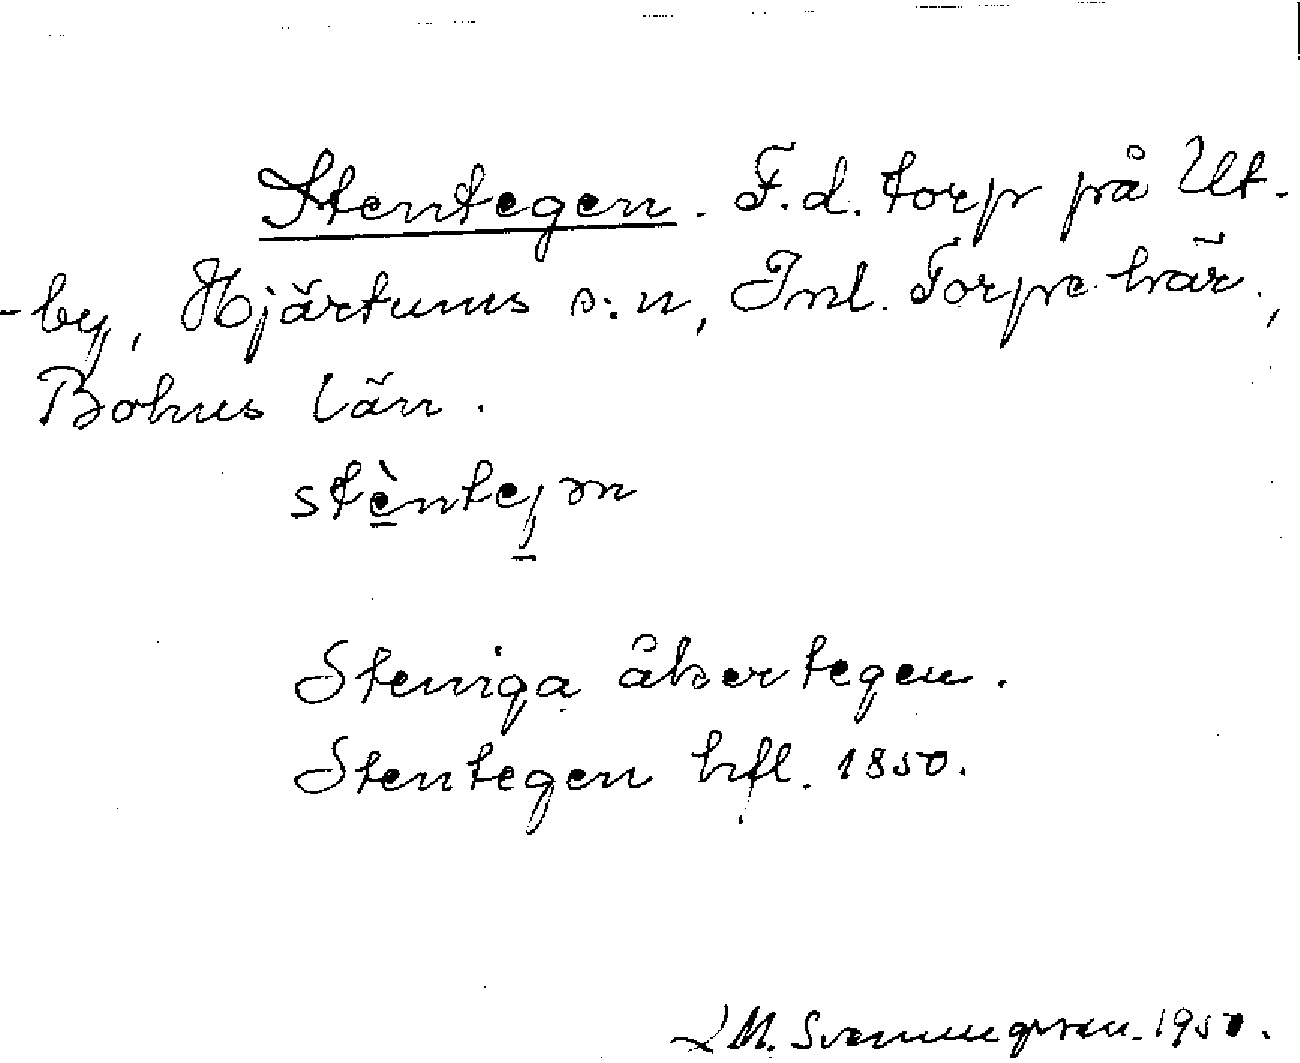 Stentegen. F.d. torp på Ut-
-by, Hjärtums s:n, Inl. Torpe här.,
Bohus län.
stèntejən
Steniga åkertegen.
Stentegen hfl. 1850.
LM. Svenungsson. 1950.